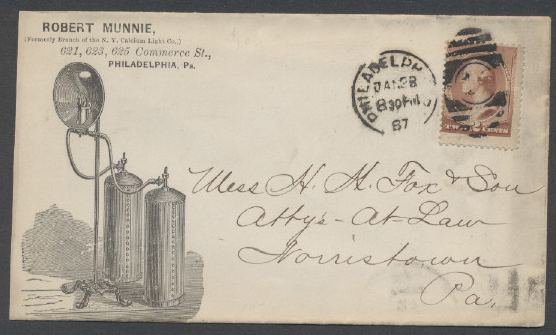 ROBERT MUNNIE,
(Formerly Branch of the N. Y. Calcium Light Co.,)
621, 623, 625 Commerce St.,
PHILADELPHIA, Pa.
PHILADELPH
JAN 28
8 30 PM
87
TWO CENTS
Mess H. M. Fox & Son
Atty's-At-Law
Norristown
Pa.